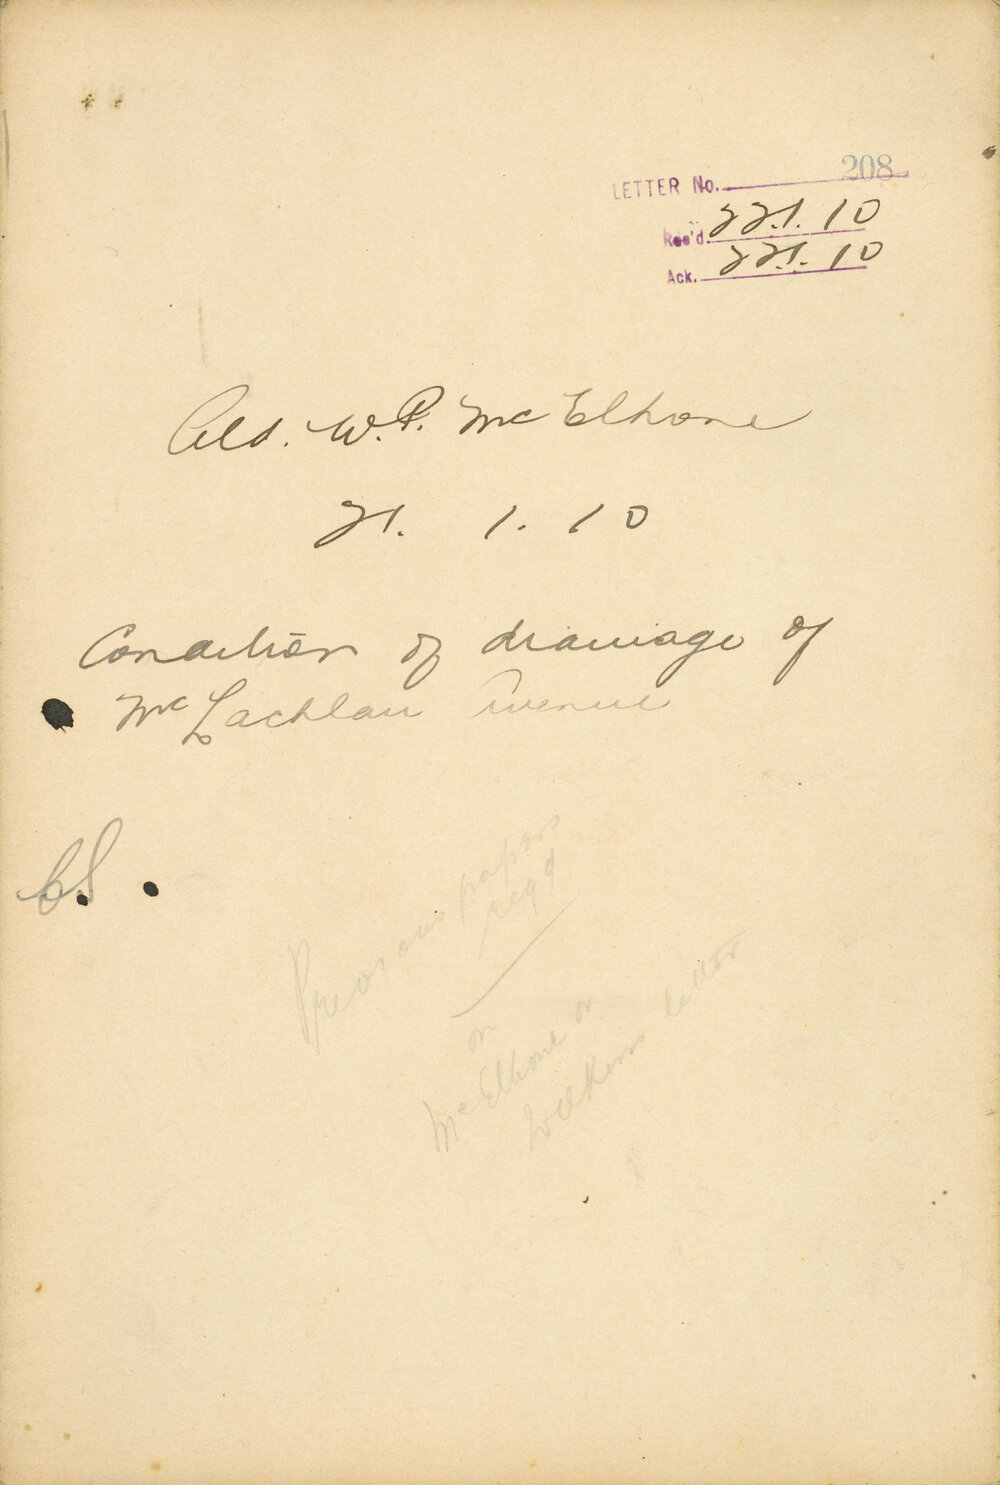 LETTER No. 208
Rec'd. 22.1.10
Ack. 22.1.10
Ald. W. P. McElhone
21. 1. 10
Condition of drainage of
McLachlan Avenue
C.S.
Previous papers
regd
on
McElhone or
letter